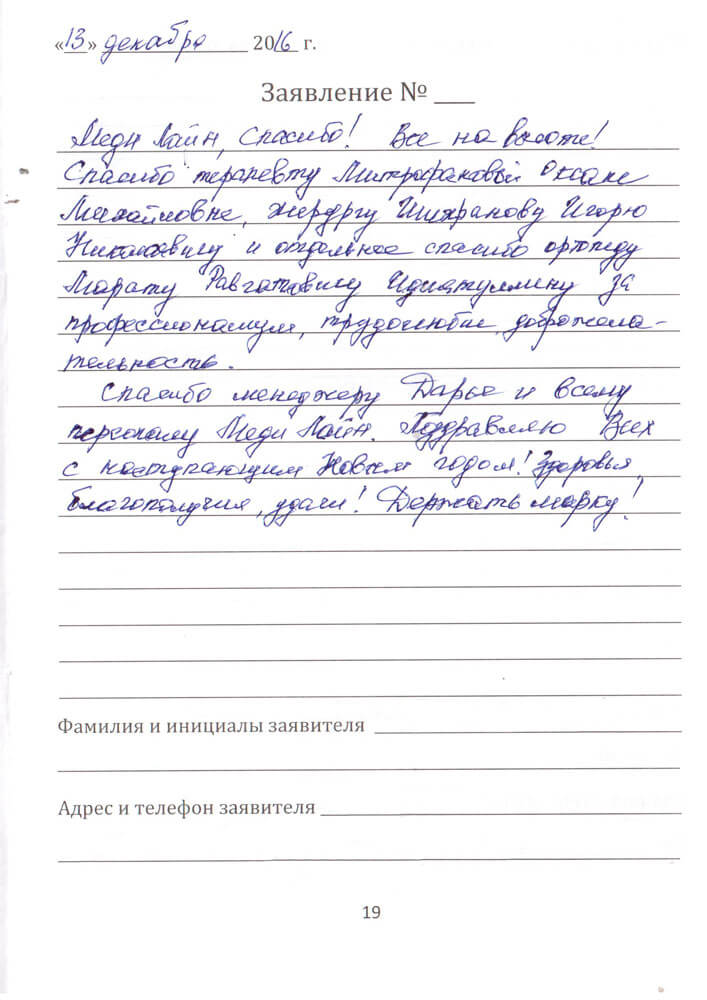 «13» декабря 2016 г.
Заявление № ___
Меди Лайн, спасибо! Все на высоте!
Спасибо терапевту Митрофановой Оксане
Михайловне, хирургу Шихранову Игорю
Николаевичу и отдельное спасибо ортопеду
Марату Равгатовичу Идиатуллину за
профессионализм, трудолюбие, доброжела-
тельность.
Спасибо менеджеру Дарье и всему
персоналу Меди Лайн. Поздравляю Всех
с наступающим Новым годом! Здоровья,
благополучия, удачи! Держать марку!
Фамилия и инициалы заявителя
Адрес и телефон заявителя
19